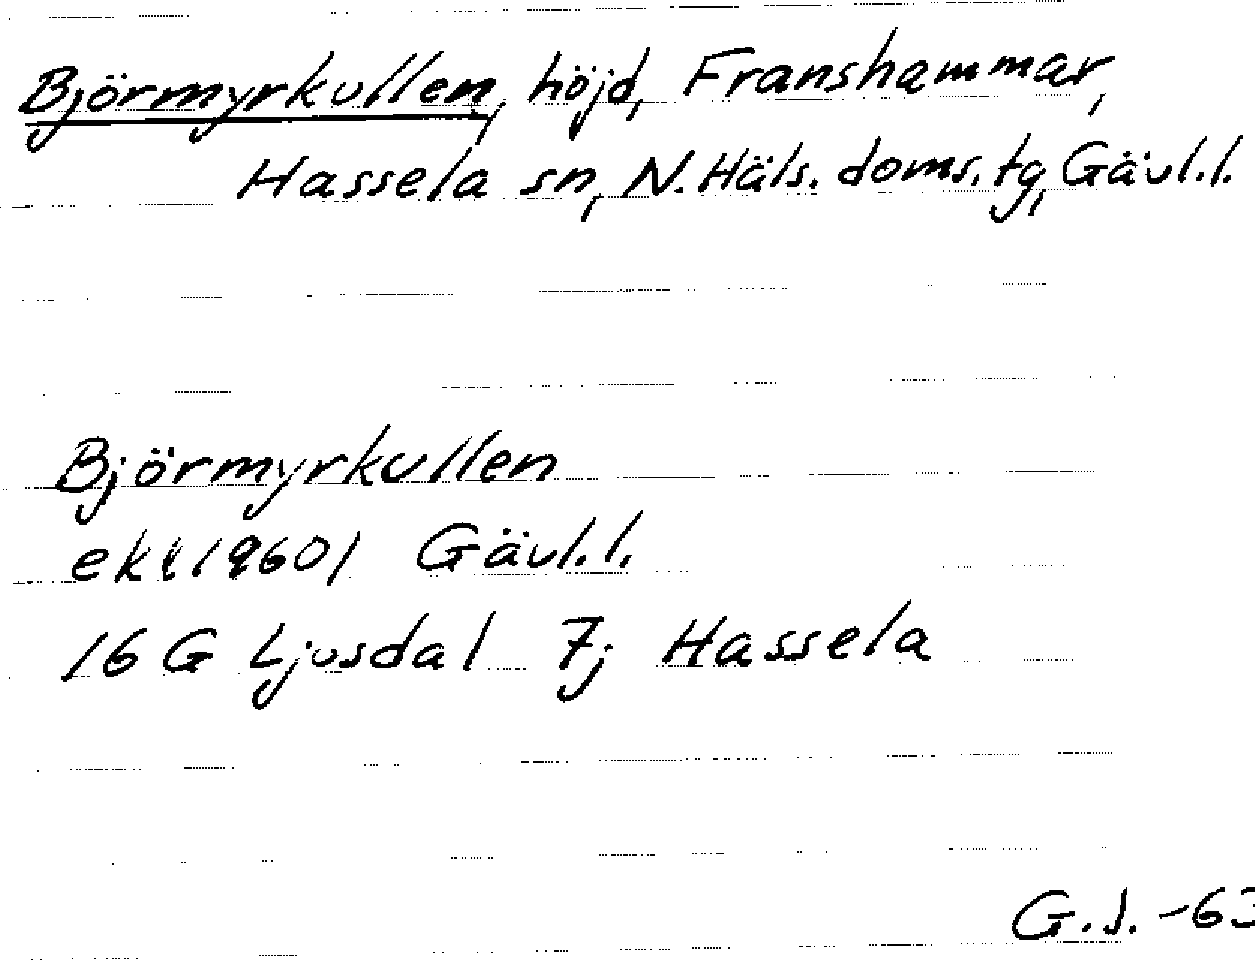 Björmyrkullen, höjd, Franshammar,
Hassela sn, N. Häls. doms. tg, Gävl.l.
Björmyrkullen
ek(1960) Gävl.l.
16 G Ljusdal 7j Hassela
G.J. -63